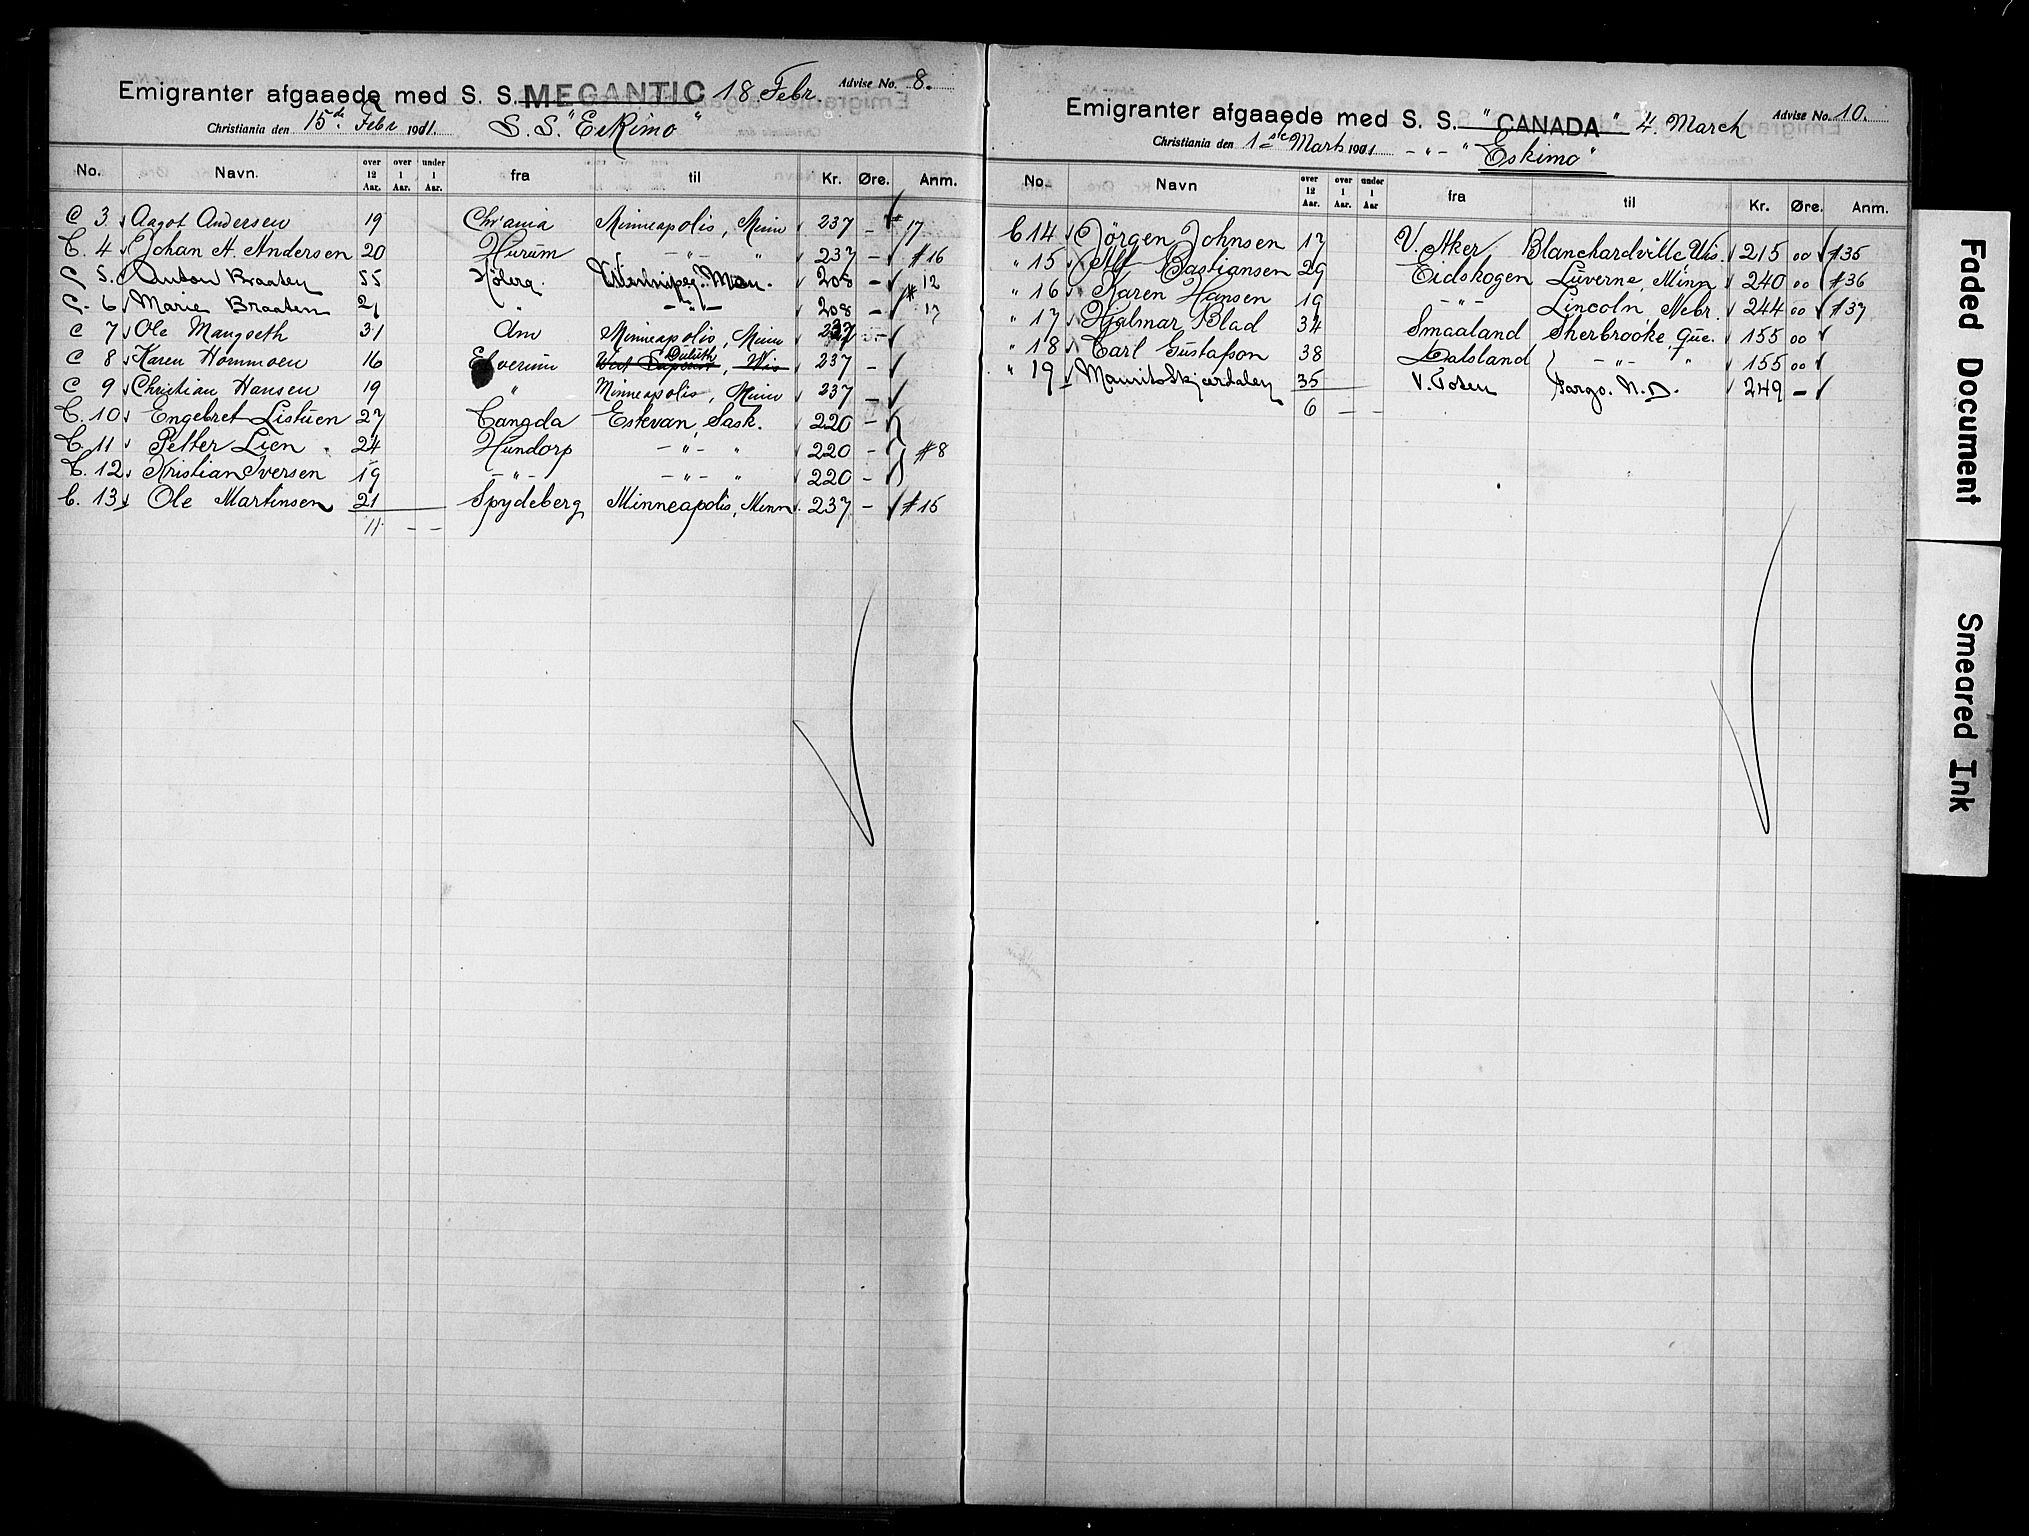 Emigranter afgaaede med S. S. MEGANTIC 18. Febr. Advise No. 8.
Christiania den 15de Febr 1911. S. S. "Eskimo"
No. Navn. over 12 Aar. over 1 Aar. under 1 Aar. fra til Kr. Øre. Anm.
C 3. Aagot Andersen 19 Chr'ania Minneapolis, Minn 237 - # 17
C. 4 Johan A. Andersen 20 Hurum - " - " 237 - #16
C 5. Anton Braaten 55 Winnipeg. Man. 208 - # 12
C. 6 Marie Braaten 21 " - " - 208 - 17
C 7 Ole Maugseth 31 Am Minneapolis, Minn 237 -
C 8 Karen Hommoen 16 Elverum West Superior, Wis Duluth 237 -
C 9 Christian Hansen 19 " Minneapolis, Minn 237 -
C. 10 Engebret Listuen 27 Canada Estevan, Sask. 220 -
C. 11 Petter Lien. 24 Hundorp - " - " 220 - #8
C. 12 Kristian Iversen 19 - " - - " - " 220 -
C. 13 Ole Martinsen 21 Spydeberg Minneapolis, Minn. 237 - #15
11 - -
Emigranter afgaaede med S. S. "CANADA" 4. March Advise No. 10.
Christiania den 1ste Marts 1911 - " - "Eskimo"
No. Navn over 12 Aar. over 1 Aar. under 1 Aar fra til Kr. Øre. Anm.
C 14 Jörgen Johnsen 17 V. Aker Blanchardville Wis. 215 00 #35
" 15 Alf Bastiansen 29 Eidskogen Luverne, Minn 240 00 #36
" 16 Karen Hansen 19 - " - Lincoln, Nebr. 244 00 #37
" 17 Hjalmar Blad 34 Smaaland Sherbrooke, Que. 155 00
" 18 Carl Gustafson 38 Dalsland - " - " 155 00
" 19 Maurits Skjerdalen 35 V. Toten Fargo. N. D. 249 -
6 - -
Faded Document
Smeared Ink